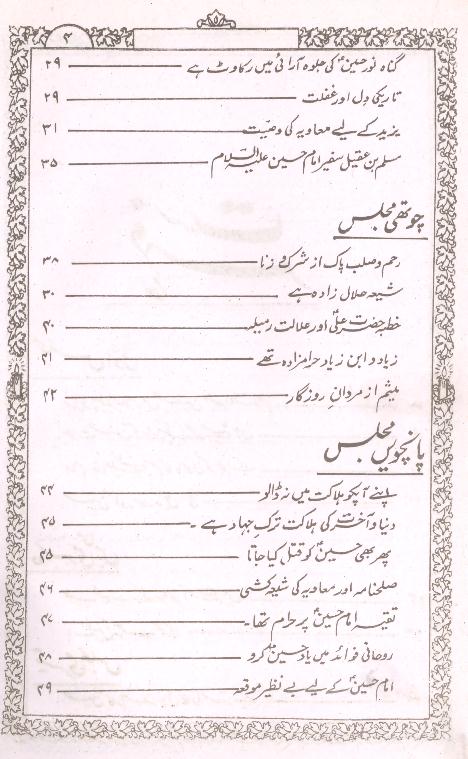 ۵
۴
گناہ نور حسینؑ کی جلوہ آرائی میں رکاوٹ ہے ۲۹
تاریکی دل اور غفلت ۲۹
یزید کے لیے معاویہ کی وصیّت ۳۱
مسلم بن عقیل سفیر امام حسین علیہ السلام ۳۵
چوتھی مجلس
رحم و صلب پاک از شرک و زنا ۳۸
شیعہ حلال زادہ ہے ۳۰
خطبہ حضرت علیؑ اور علالت رمیلہ ۴۰
زیاد و ابن زیاد حرامزادہ تھے ۴۱
میثم از مردانِ روزگار ۴۲
پانچویں مجلس
اپنے آپکو ہلاکت میں نہ ڈالو ۴۴
دنیا و آخرت کی ہلاکت ترکِ جہاد ہے ۔ ۴۵
پھر بھی حسینؑ کو قتل کیا جاتا ۴۵
صلحنامہ اور معاویہ کی شیعہ کشی ۴۶
تقیہ امام حسینؑ پر حرام تھا ۔ ۴۷
روحانی فوائد میں یاد حسینؑ کرو ۴۸
امام حسینؑ کے لیے بے نظیر موقعہ ۴۹